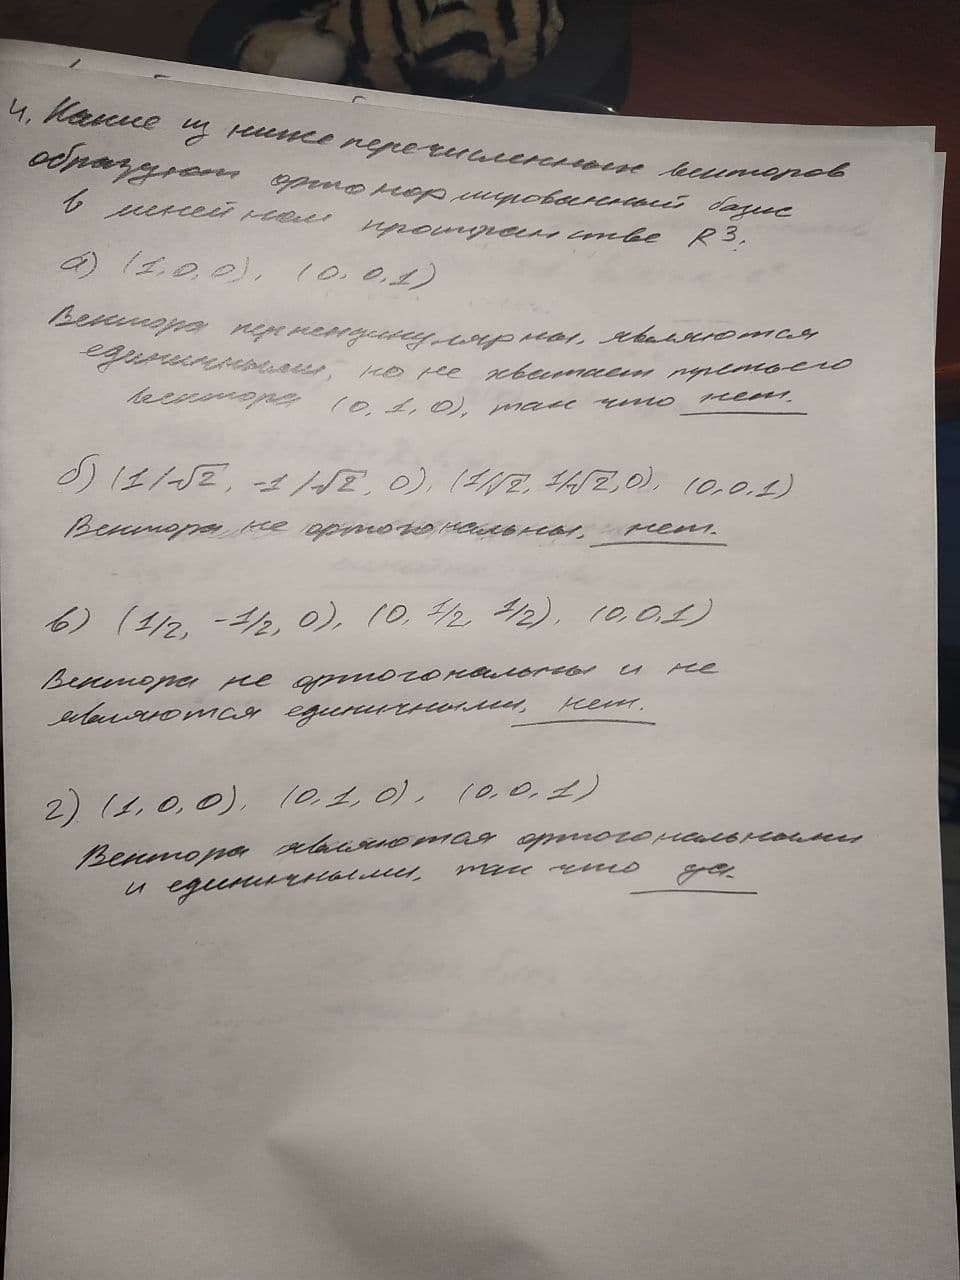 4. Какие из ниже перечисленных векторов
образуют ортонормированный базис
в линейном пространстве R3:
а) (1, 0, 0), (0, 0, 1)
Вектора перпендикулярны, являются
единичными, но не хватает третьего
вектора (0, 1, 0), так что нет.
б) (1/√2, -1/√2, 0), (1/√2, 1/√2, 0), (0, 0, 1)
Вектора не ортогональны, нет.
в) (1/2, -1/2, 0), (0, 1/2, 1/2), (0, 0, 1)
Вектора не ортогональны и не
являются единичными, нет.
г) (1, 0, 0), (0, 1, 0), (0, 0, 1)
Вектора являются ортогональными
и единичными, так что да.